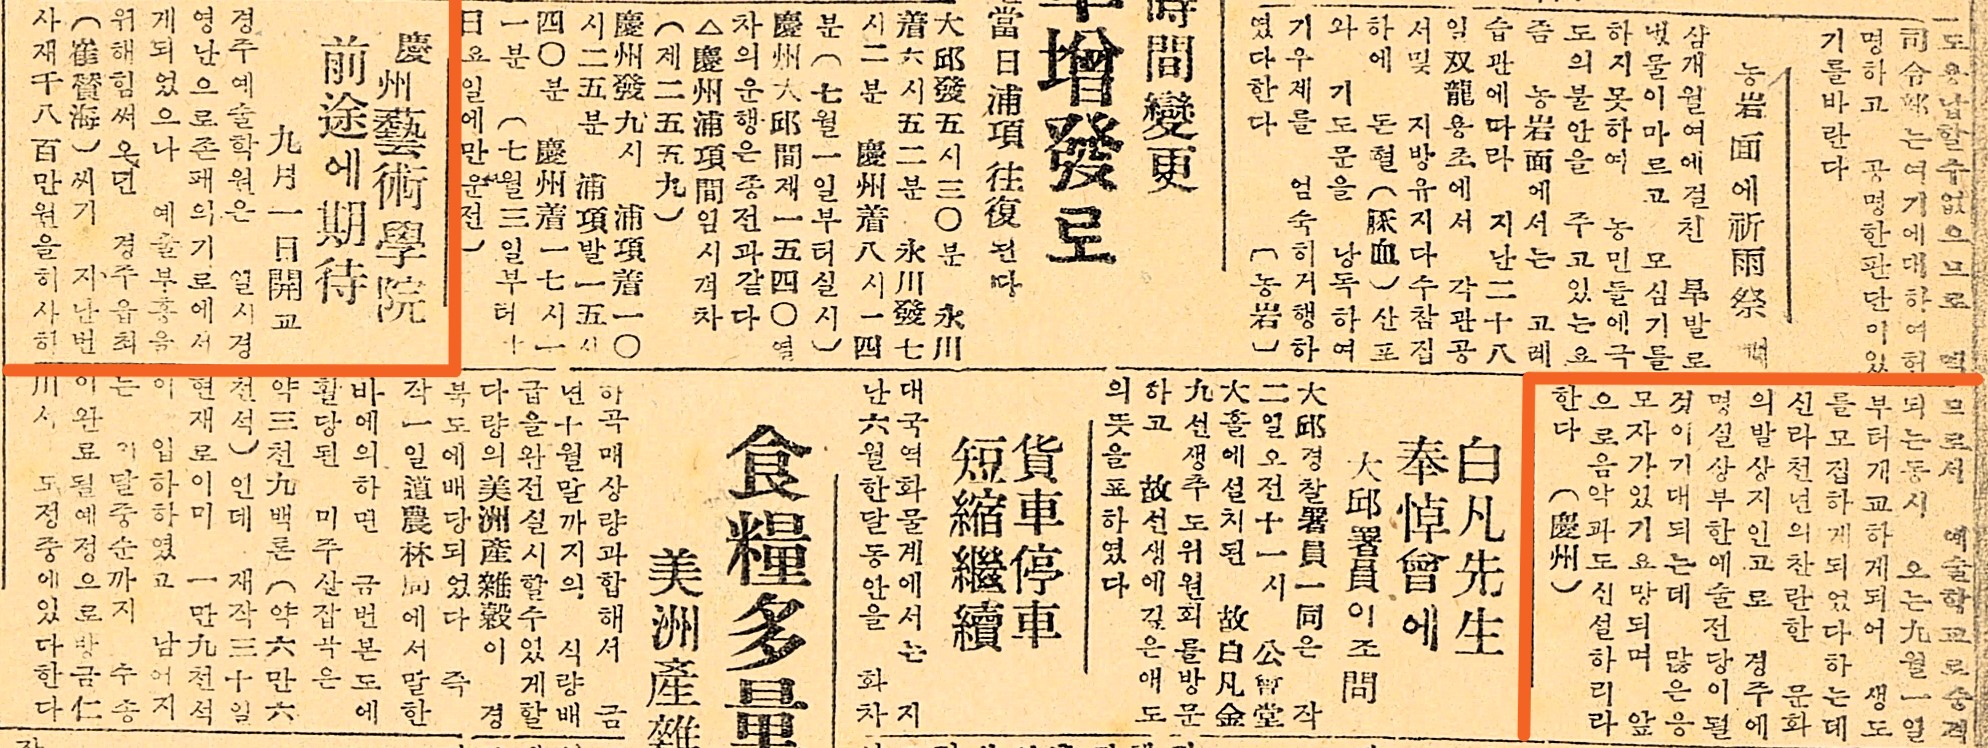 도용납할수없으므로
司令部는여기에대하여허
명하고 공명한판단이있
기를바란다
농岩面에祈雨祭
삼개월여에걸친 旱발로
냇물이마르고 모심기를
하지못하여 농민들에극
도의불안을 주고있는요
즘 농岩面에서는 고례
습관에따라 지난二十八
일双龍용초에서 각관공
서및 지방유지다수참집
하에 돈혈(豚血)산포
와 기도문을 낭독하여
기우제를 엄숙히거행하
였다한다 (농岩)
時間變更
增發로
當日浦項往復된다
大邱發五시三○분 永川
着六시五二분 永川發七
시二분 慶州着八시一四
분(七월一일부터실시)
慶州大邱間재一五四○열
차의운행은종전과같다
△慶州浦項間임시객차
(제二五五九)
慶州發九시 浦項着一○
시二五분 浦項발一五시
四○분 慶州着一七시一
一분(七월三일부터
日요일에만운전)
慶州藝術學院
前途에期待
九月一日開교
경주예술학원은 일시경
영난으로존폐의기로에서
게되었으나 예술부흥을
위해힘써오던 경주읍최
(崔賛海)씨가 지난번
사재千八百만원을희사하
므로서 예술학교로승격
되는동시 오는九월一일
부터개교하게되어 생도
를모집하게되었다하는데
신라천년의찬란한 문화
의발상지인고로 경주에
명실상부한예술전당이될
것이기대되는데 많은응
모자가있기요망되며 앞
으로음악과도신설하리라
한다 (慶州)
白凡先生
奉悼會에
大邱署員이조問
大邱경찰署員一同은 작
二일오전十一시 公會堂
大홀에설치된 故白凡金
九선생추도위원회를방문
하고 故선생에깊은애도
의뜻을표하였다
貨車停車
短縮繼續
대국역화물계에서는 지
난六월한달동안을 화차
食糧多量
美洲産雜
하곡매상량과합해서 금
년十월말까지의 식량배
급을완전실시할수있게할
다량의美洲産雜穀이 경
북도에배당되었다 즉
작一일道農林局에서말한
바에의하면 금번본도에
활당된 미주산잡곡은
약三천九백톤(약六만六
천석)인데 재작三十일
현재로이미 一만九천석
이 입하하였고 남어지
는 이달중순까지 수송
이완료될예정으로방금仁
川서 도정중에있다한다